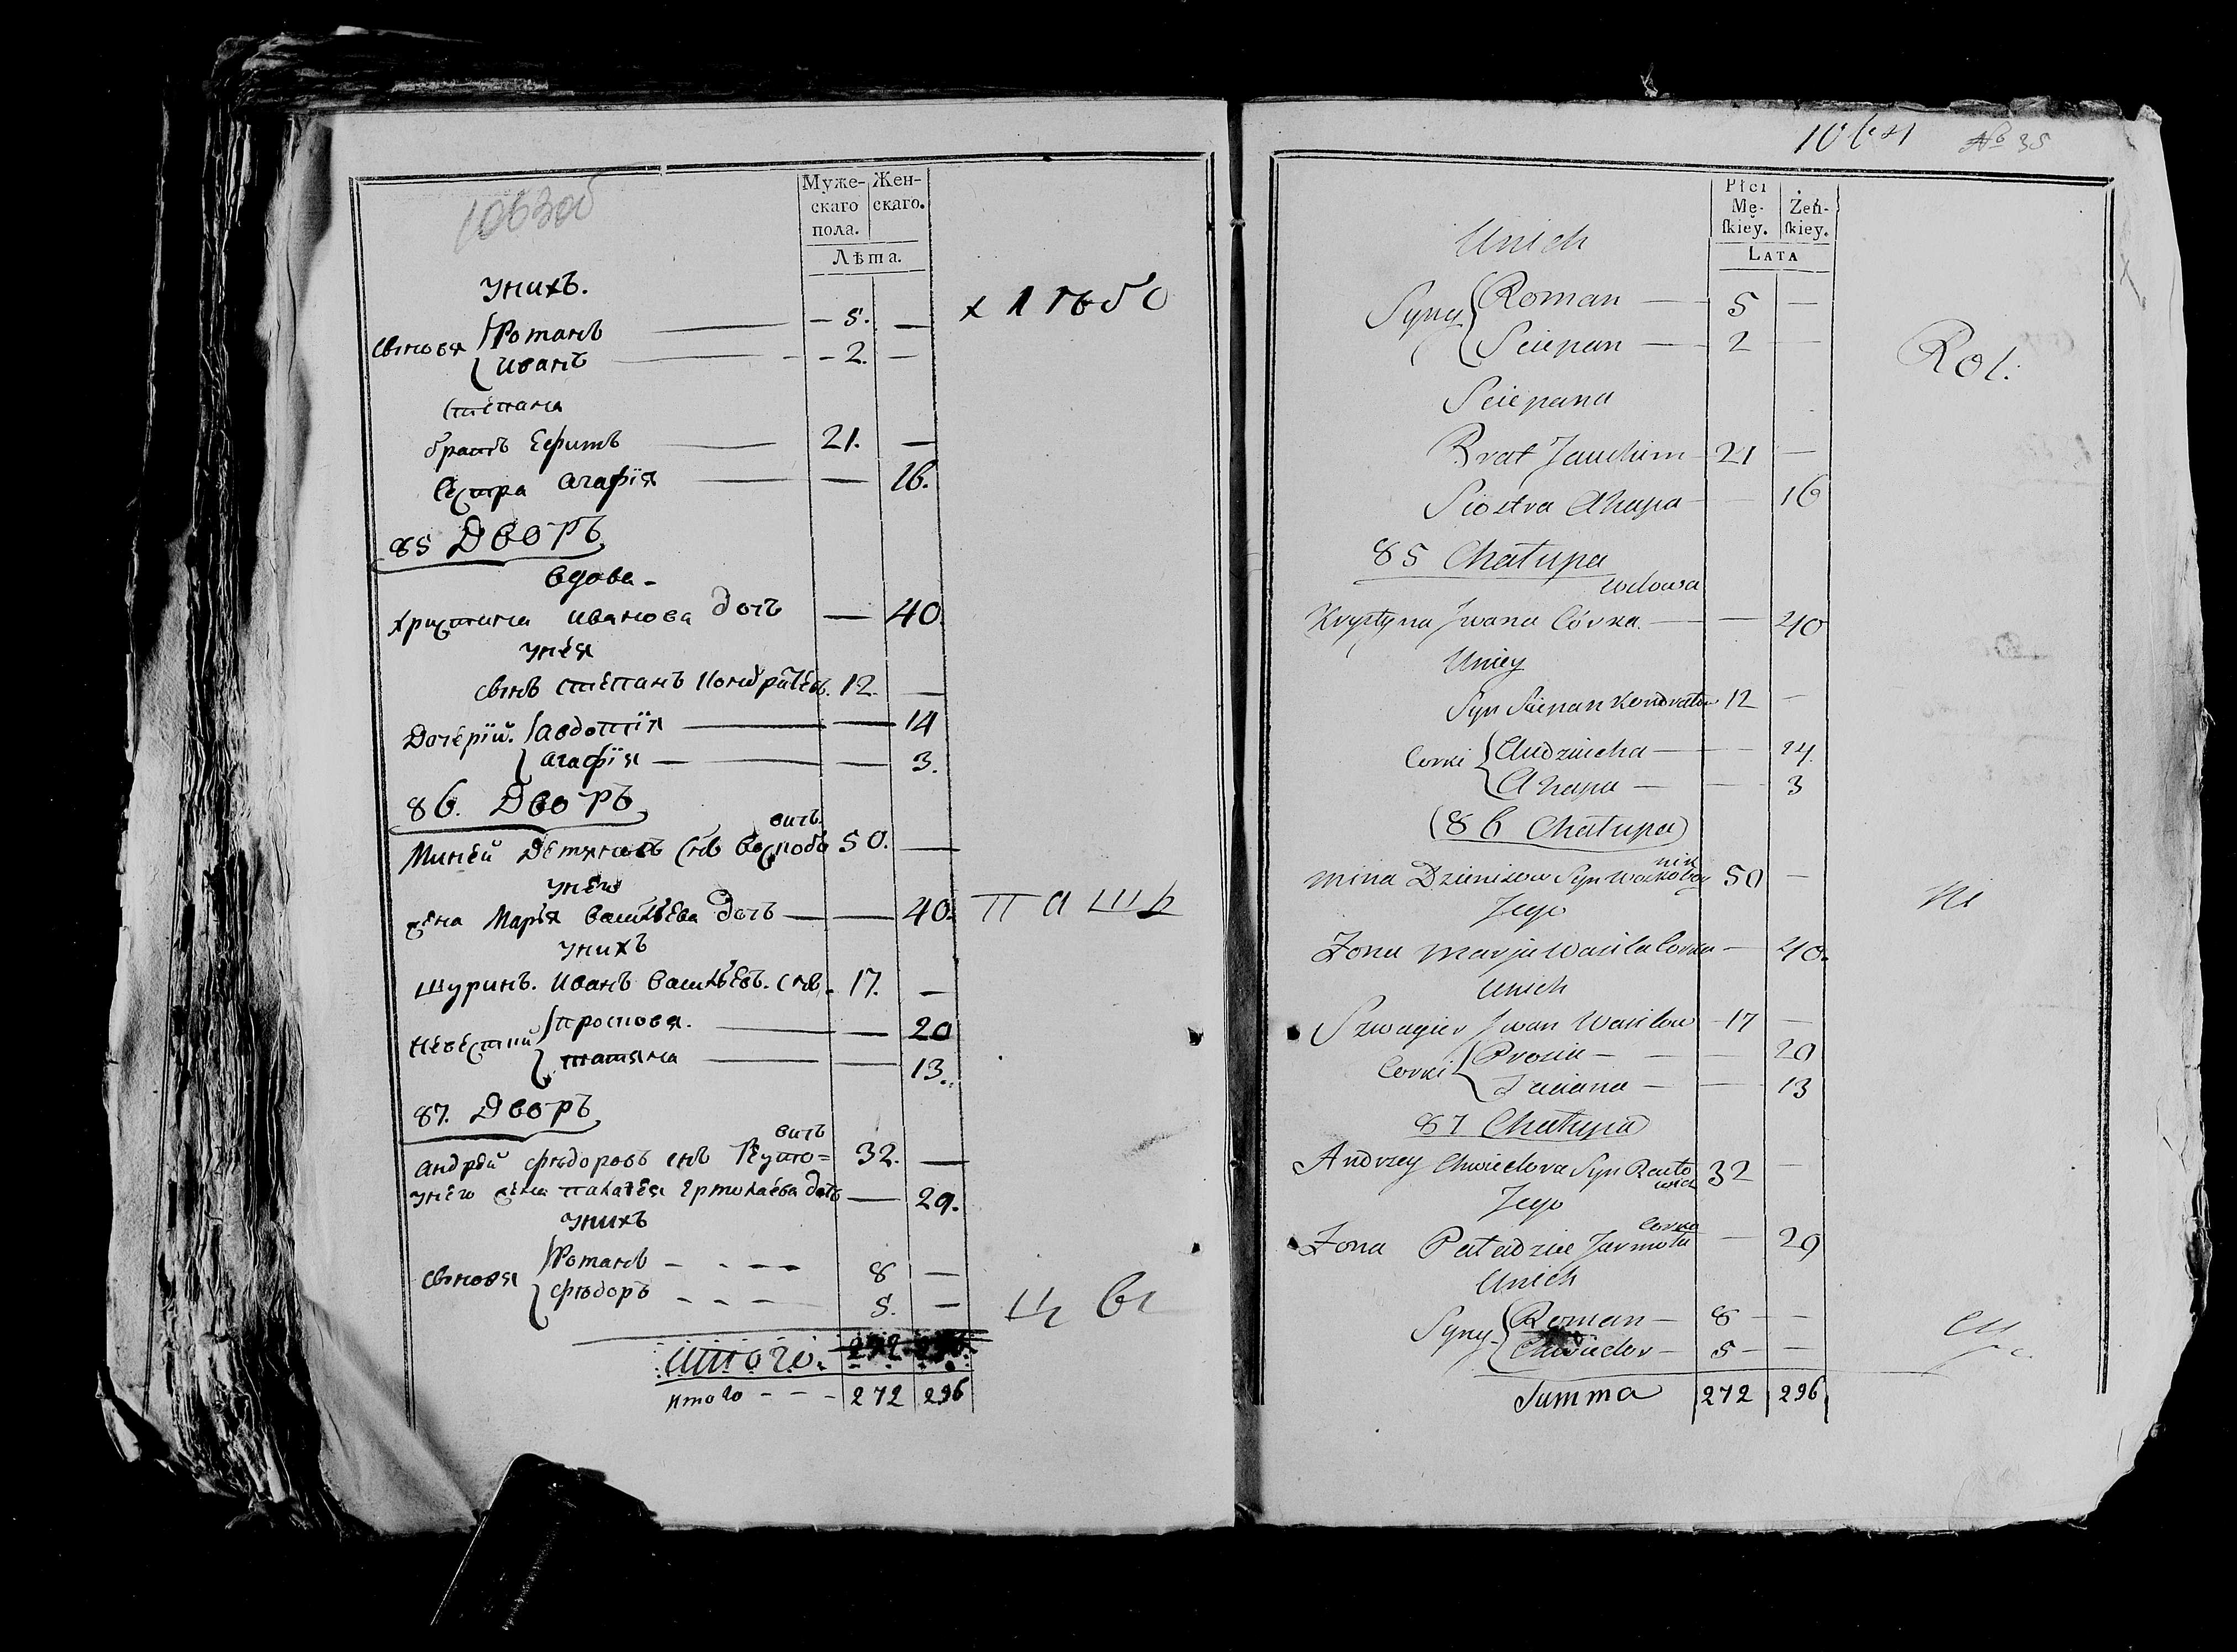 1063об
Муже- Жен-
скаго скаго.
пола.
Лѣта.
Унихъ.
Сынovя Романъ — 5. —
Иванъ — 2. —
Степана
братъ Ефимъ — 21. —
Сестра Агафїя — — 16.
85 Дворъ
Вдова
Христина Иванова дочъ — 40.
Унея
сынъ Степанъ Кондратьевъ. 12. —
Дочерїй. Авдотїя — — 14
Агафїя — — 3.
86. Дворъ
вичъ.
Миней Денисовъ снъ 50. —
Унего
жена Марья Васильева дочъ — — 40.
Унихъ
Шуринъ. Иванъ Васильевъ. снъ. 17. —
Невестки Просковя. — — 20
Татяна — — 13.
87. Дворъ
вичъ
Андрей Фѣдоровъ снъ Реуто= 32. —
Унего жена Палагея Ермолаева дочъ — 29.
Унихъ
Сыновя Романъ 8 —
Фѣдоръ 5. —
Итого. 272 296.
Итого - - - 272 296
хлѣбо
паш
1064 № 35
Płci
Mę- Żeń-
ſkiey. ſkiey.
LATA
Unich
Syny Roman — 5 —
Sciepan — 2 —
Sciepana
Brat Jauchim 21 —
Siostra Ahapa — 16
85 Chałupa
wdowa
Krystyna Jwana Córka — — 40
Uniey
Syn Sciepan Kondratow 12 —
Corki Audziucha — — 14.
Ahapa — — 3
(86 Chałupa)
Mina Dzienisow Syn 50 —
Jego
Żona Marja Wasila Corka — 40.
Unich
Szwagier Jwan Wasilow 17 —
Corki Prosia — — 20
Taciana — — 13
87 Chałupa
Andrzey Chwiedora Syn Reuto 32 —
wicz
Jego
Corka
Żona Paładzieia Jarmoła — 29
Unich
Syny Roman — 8 —
Chwiedor — 5 —
Summa 272 296
Rol.